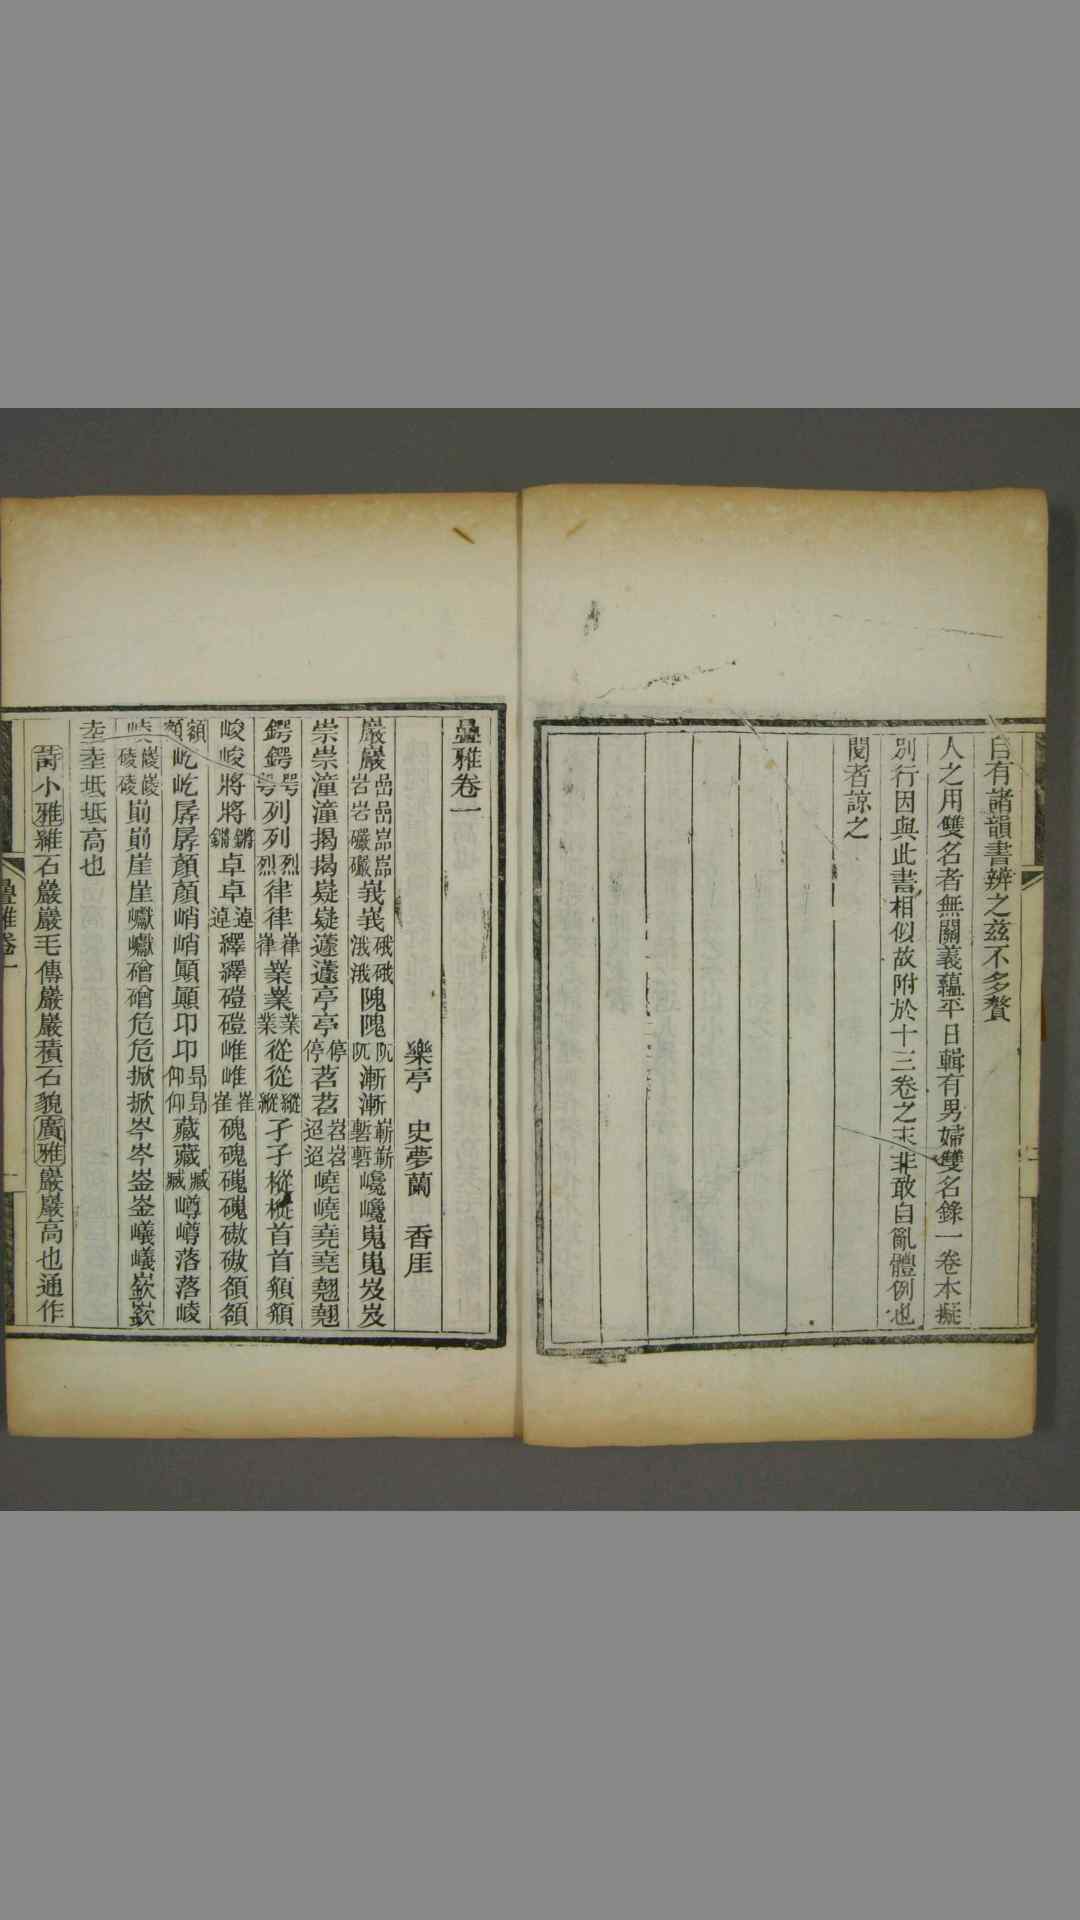 自有諸韻書辨之茲不多贅
人之用雙名者無關義蘊平日輯有男婦雙名錄一卷本擬
別行因與此書相似故附於十三卷之末非敢自亂體例也
閱者諒之
疊雅卷一
樂亭 史夢蘭 香厓
巖巖嵒嵒嵓嵓岩岩礹礹峩峩硪硪涐涐隗隗阢阢漸漸嶄嶄蹔蹔巉巉嵬嵬岌岌
崇崇潼潼揭揭嶷嶷蘧蘧亭亭停停苕苕岧岧迢迢嶢嶢堯堯翹翹
鍔鍔咢咢列列烈烈律律嵂嵂業業從從縱縱孑孑樅樅首首頯頯
峻峻將將鏘鏘卓卓逴逴繹繹磑磑崔崔磈磈磝磝頟頟
額額屹屹孱孱顏顏峭峭顚顚卬卬昻昻仰仰藏藏臧臧嶟嶟落落崚
崚嶐嶐磏磏崱崱崖崖巘巘磳磳危危掀掀岑岑崟崟嶬嶬嶔嶔
坴坴坻坻高也
詩小雅維石巖巖毛傳巖巖積石貌廣雅巖巖高也通作
疊雅卷一